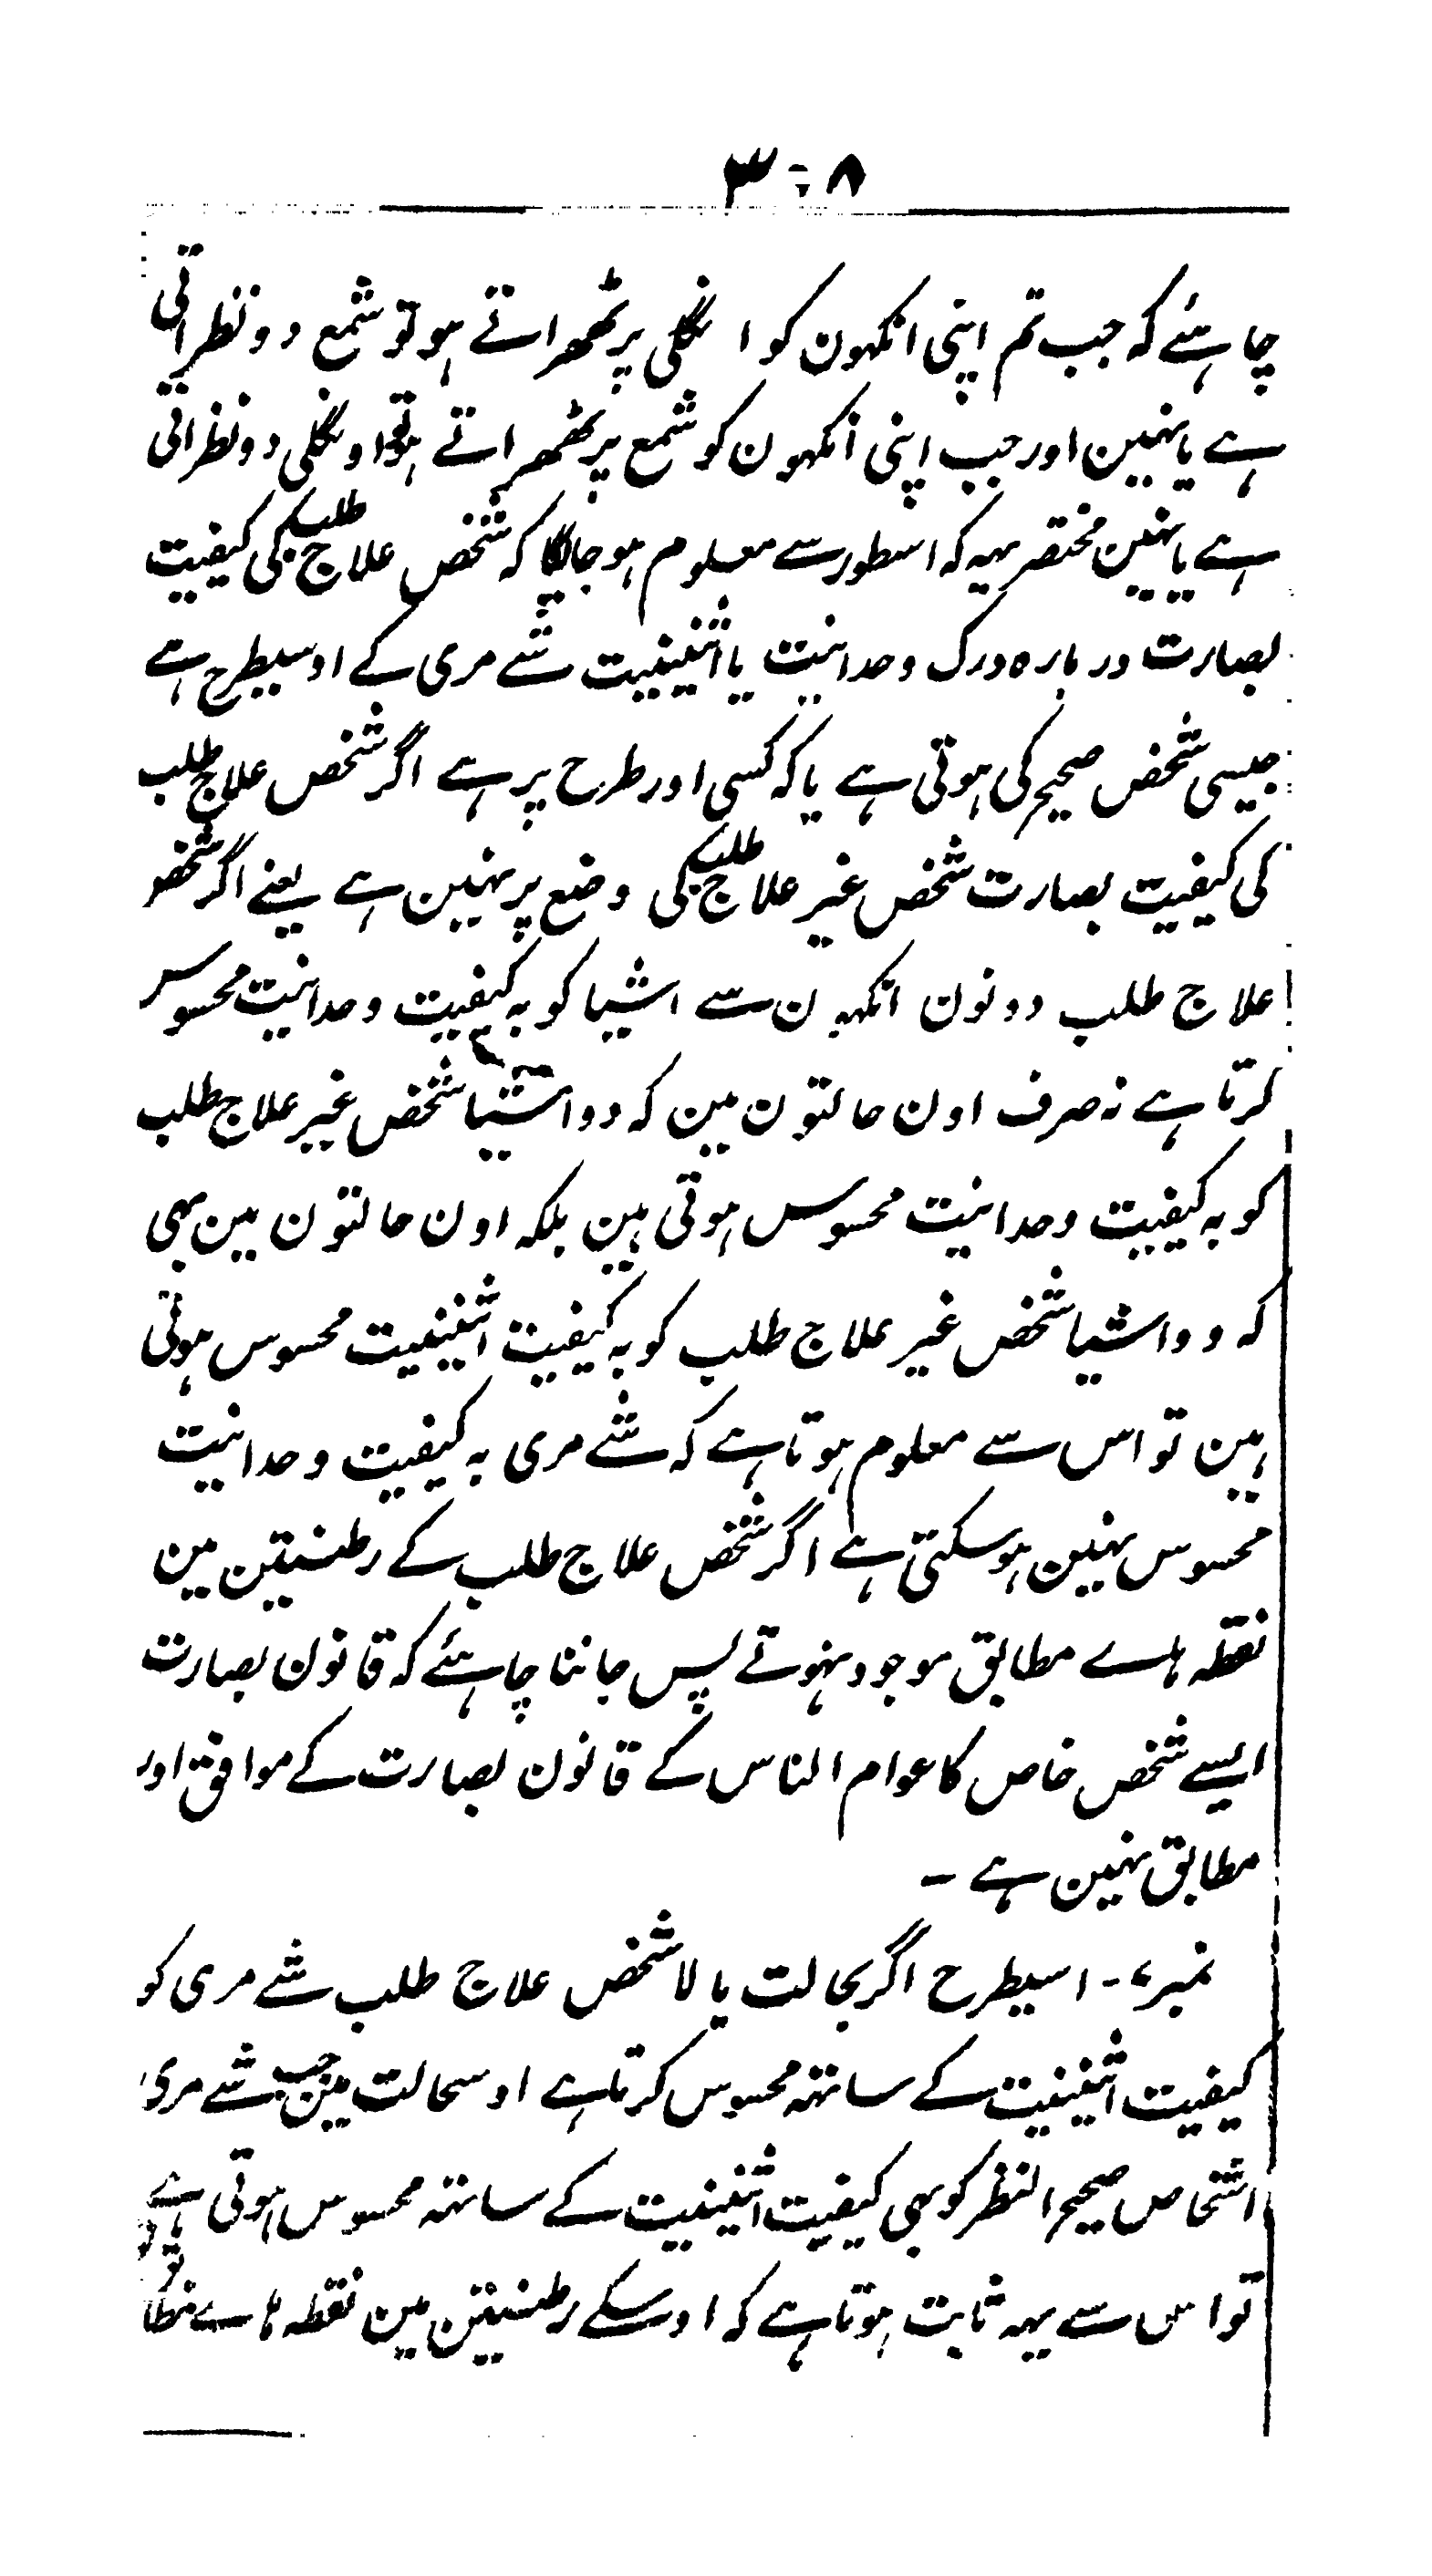 ۳۰۸
چاہئے کہ جب تم اپنی انکہون کو انگلی پر ٹھہراتے ہو تو شمع دو نظر اتی
ہے یا نہین اور جب اپنی انکہون کو شمع پر ٹھہراتے ہو تو اونگلی دو نظر اتی
ہے یا نہین مختصر یہہ کہ اسطور سے معلوم ہو جائیگا کہ شخص علاج طلب کی کیفیت
بصارت در بارہ درک وحدانیت یا اثنینیت شے مری کے اوسیطرح ہے
جیسی شخص صحیح کی ہوتی ہے یا کہ کسی اور طرح پر ہے اگر شخص علاج طلب
کی کیفیت بصارت شخص غیر علاج طلب کی وضع پر نہین ہے یعنے اگر شخص
علاج طلب دونون انکہون سے اشیا کو بہ کیفیت وحدانیت محسوس
کرتا ہے نہ صرف اون حالتون مین کہ دو اشیا شخص غیر علاج طلب
کو بہ کیفیت وحدانیت محسوس ہوتی ہین بلکہ اون حالتون مین بہی
کہ دو اشیا شخص غیر علاج طلب کو بہ کیفیت اثنینیت محسوس ہوتی
ہین تو اس سے معلوم ہوتا ہے کہ شے مری بہ کیفیت وحدانیت
محسوس نہین ہو سکتی ہے اگر شخص علاج طلب کے رطنیتین مین
نقطہ ہاے مطابق موجود نہوتے پس جاننا چاہئے کہ قانون بصارت
ایسے شخص خاص کا عوام الناس کے قانون بصارت کے موافق اور
مطابق نہین ہے ۔
نمبر ۷ ۔ اسیطرح اگر بحالت بالا شخص علاج طلب شے مری کو
کیفیت اثنینیت کے ساتہہ محسوس کرتا ہے اوسحالت مین جب شے مری
اشخاص صحیح النظر کو بہی کیفیت اثنینیت کے ساتہہ محسوس ہوتی ہے
تو اس سے یہہ ثابت ہوتا ہے کہ اوسکے رطنیتین مین نقطہ ہاے مطابق